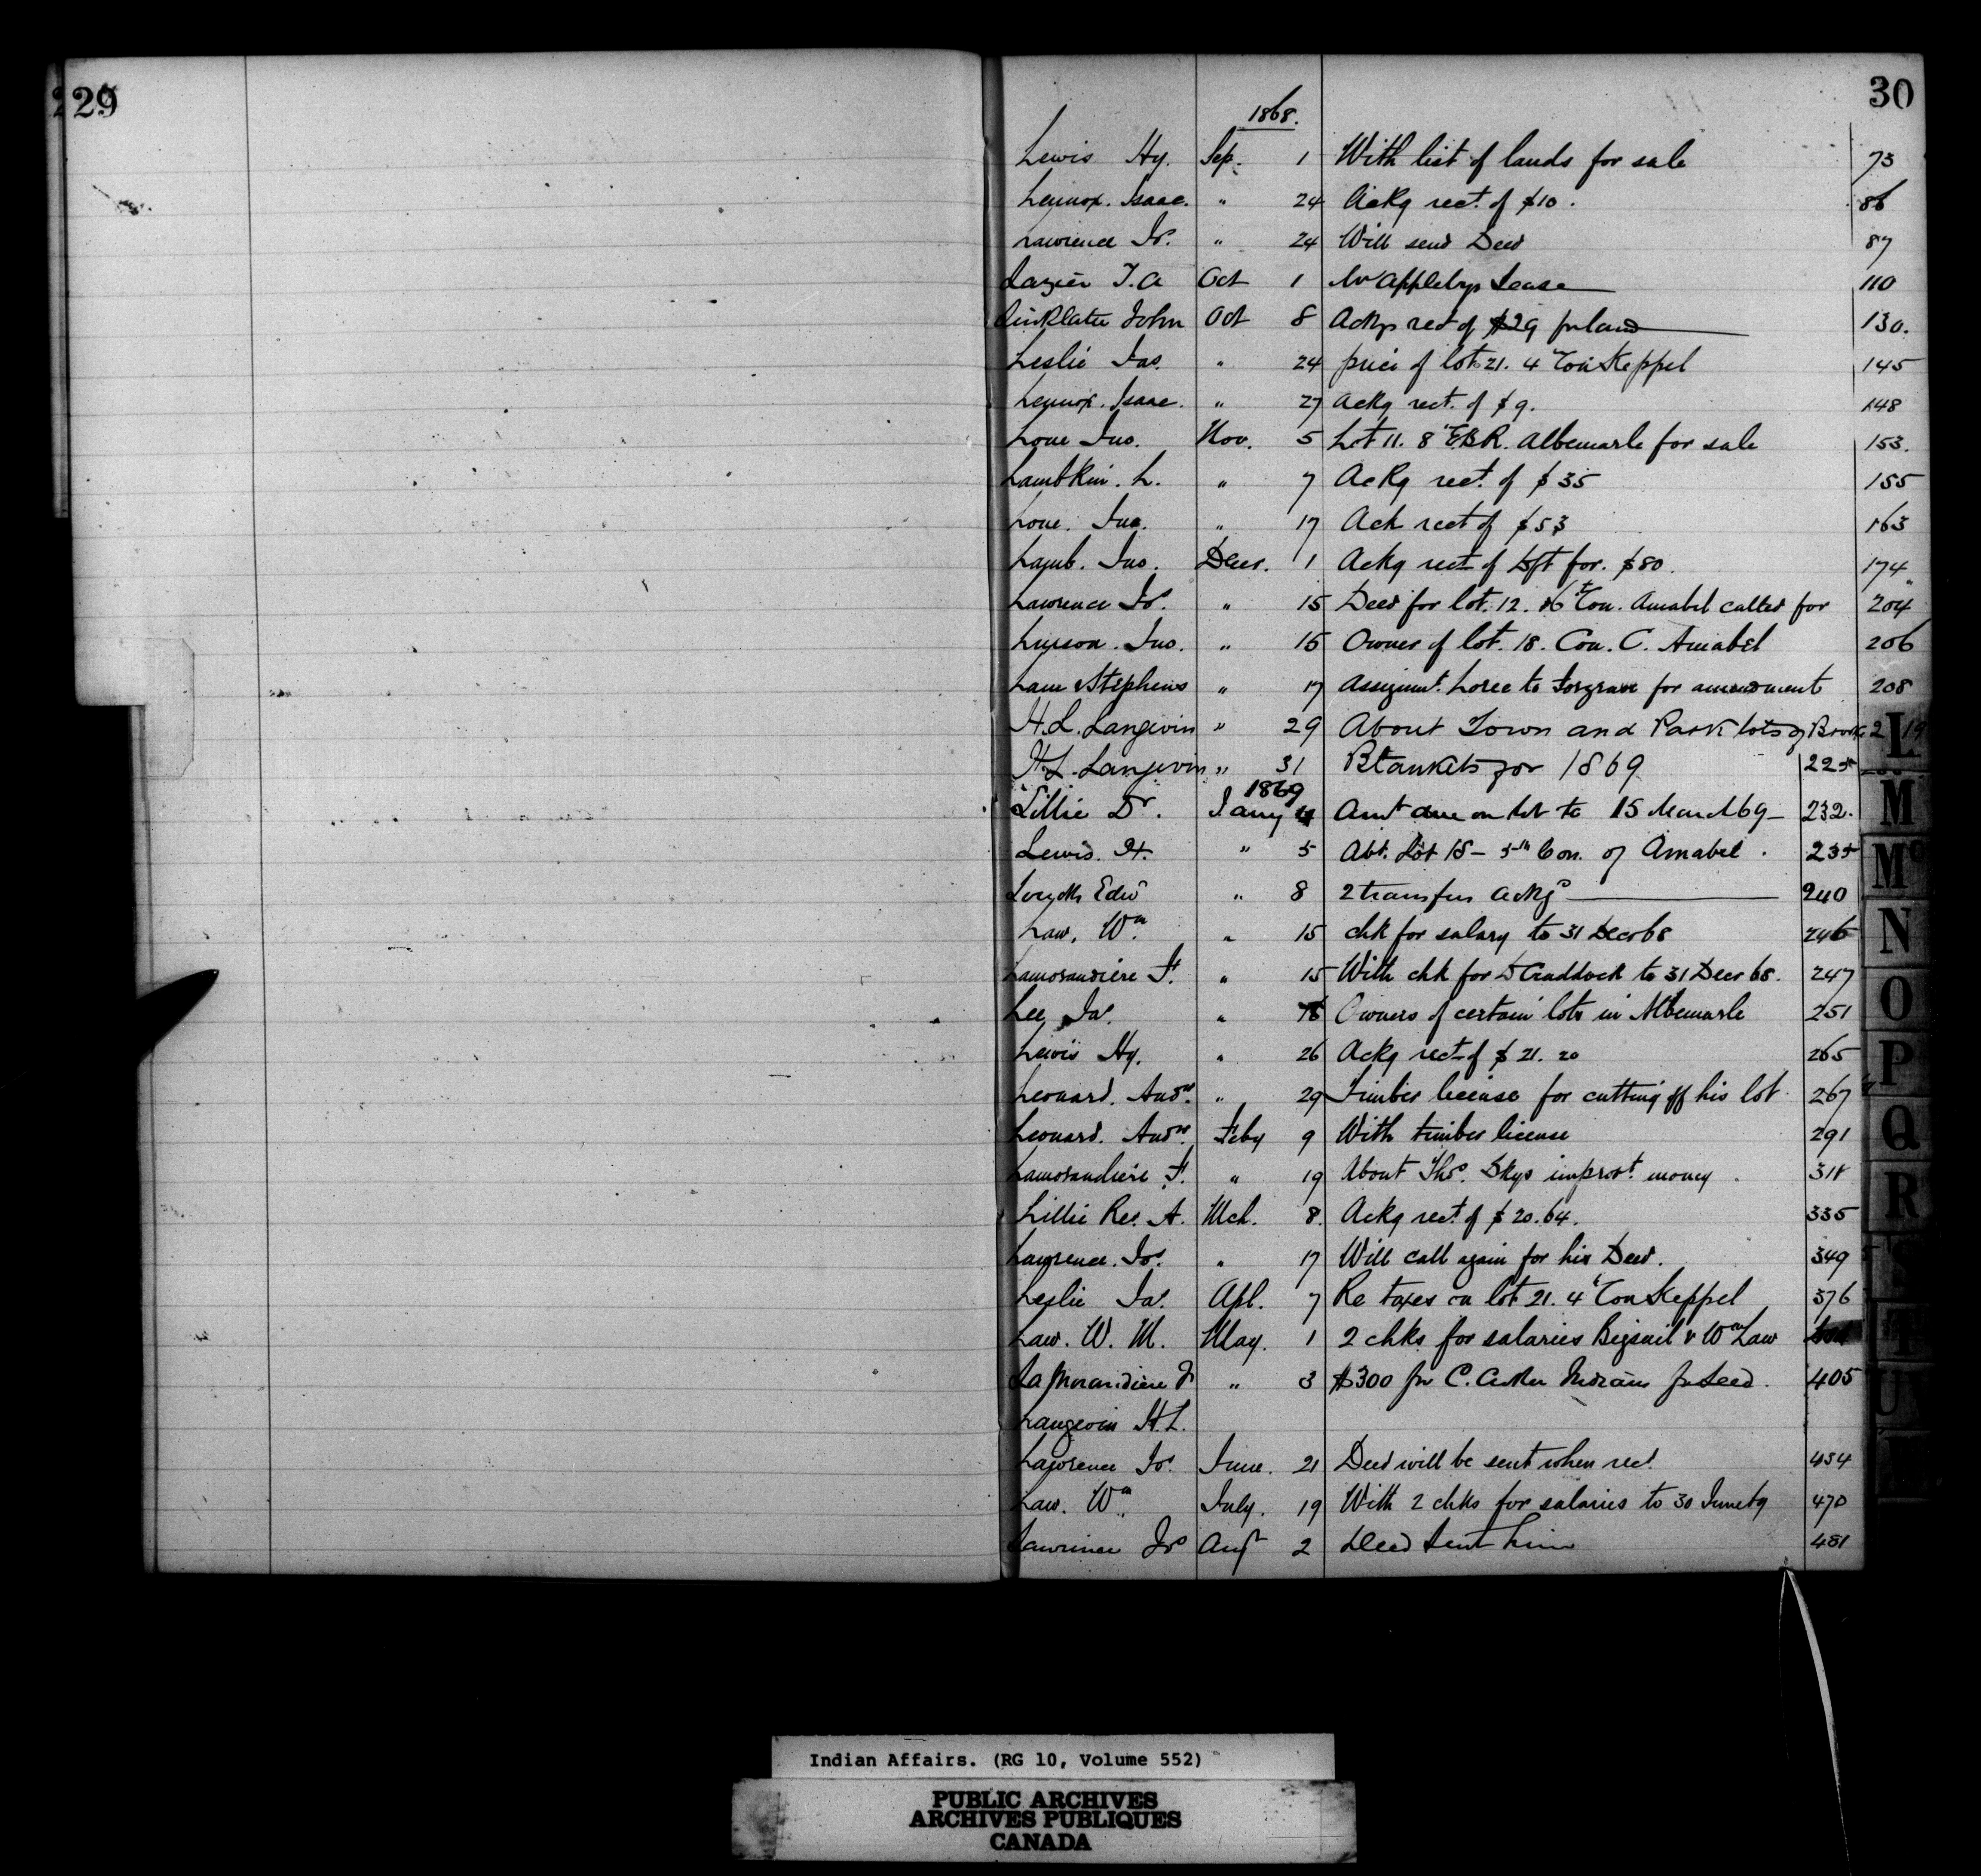 29
30
1868.
Lewis Hy. Sep. 1 With list of lands for sale 73
Lennox. Isaac. " 24 Ackg rect. of $10. 86
Lawrence Js. " 24 Will send Deed 87
Lazier T. A Oct 1 Appleby Lease 110
Linklater John Oct 8 Ackg rect of $29 for land 130.
Leslie Jas. " 24 price of lot 21. 4 Con Keppel 145
Lennox. Isaac. " 27 Ackg rect. of $9. 148
Lone Jno. Nov. 5 Lot 11. 8 E.B.R. Albemarle for sale 153.
Lambkin. L. " 7 Ackg rect. of $35 155
Lone. Jno. " 17 Ack rect of $53 163
Lamb. Jno. Decr. 1 Ackg rect of Dft for. $80. 174
Lawrence Js. " 15 Deed for lot. 12. Con. Amabel called for 204
Jno. " 15 Owner of lot. 18. Con. C. Amabel 206
Lane & Stephens " 17 Assignmt. Loree to for amendment 208
H. L. Langevin " 29 About Town and Park lots of Brooke 219
H. L. Langevin " 31 Blankets for 1869 225
1869
Lillie Dr. Jany 4 Amt due on lot to 15 March 69 232.
Lewis. H. " 5 Abt. Lot 15 - 5th Con. of Amabel. 235
Edwd " 8 2 transfers ackgd 240
Law, Wm. " 15 chk for salary to 31 Decr 68 246
Lamorandiere F. " 15 With chk for D Craddock to 31 Decr 68. 247
Lee Jas. " 18 Owners of certain lots in Albemarle 251
Lewis Hy. " 26 Ackg rect of $21.20 265
Leonard. Andw. " 29 Timber license for cutting off his lot 267
Leonard. Andw. Feby 9 With timber license 291
Lamorandiere F. " 19 About Thos. Skys improvt. money 318
Lillie Rev. A. Mch. 8. Ackg rect. of $20.64. 335
Lawrence. Js. " 17 Will call again for his Deed. 349
Leslie Jas. Apl. 7 Re taxes on lot 21. 4 Con Keppel 376
Law. W. M. May. 1 2 chks for salaries Bigsail & Wm Law
LaMorandiere F " 3 $300 for C. Croker Indians for Seed. 405
Langevin H. L.
Lawrence Js. June. 21 Deed will be sent when recd. 454
Law. Wm. July. 19 With 2 chks for salaries to 30 June 69 470
Lawrence Js Augt 2 Deed sent him 481
L
M
Mc
N
O
P
Q
R
S
T
U
Indian Affairs. (RG 10, Volume 552)
PUBLIC ARCHIVES
ARCHIVES PUBLIQUES
CANADA